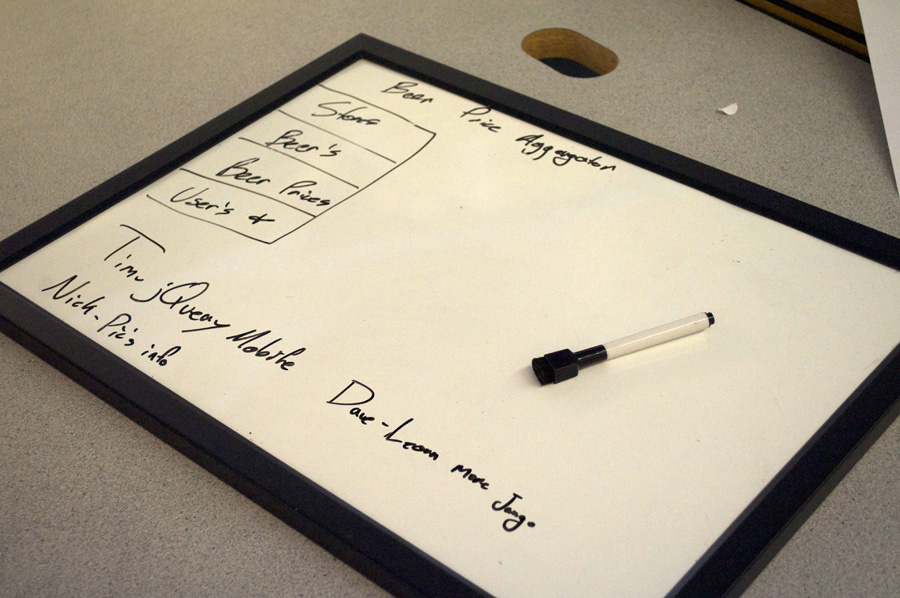 Beer Price Aggregator
Stores
Beer's
Beer Prices
User's &
Tim - jQuery Mobile
Nick - Pic's info
Dave - Learn more Jango